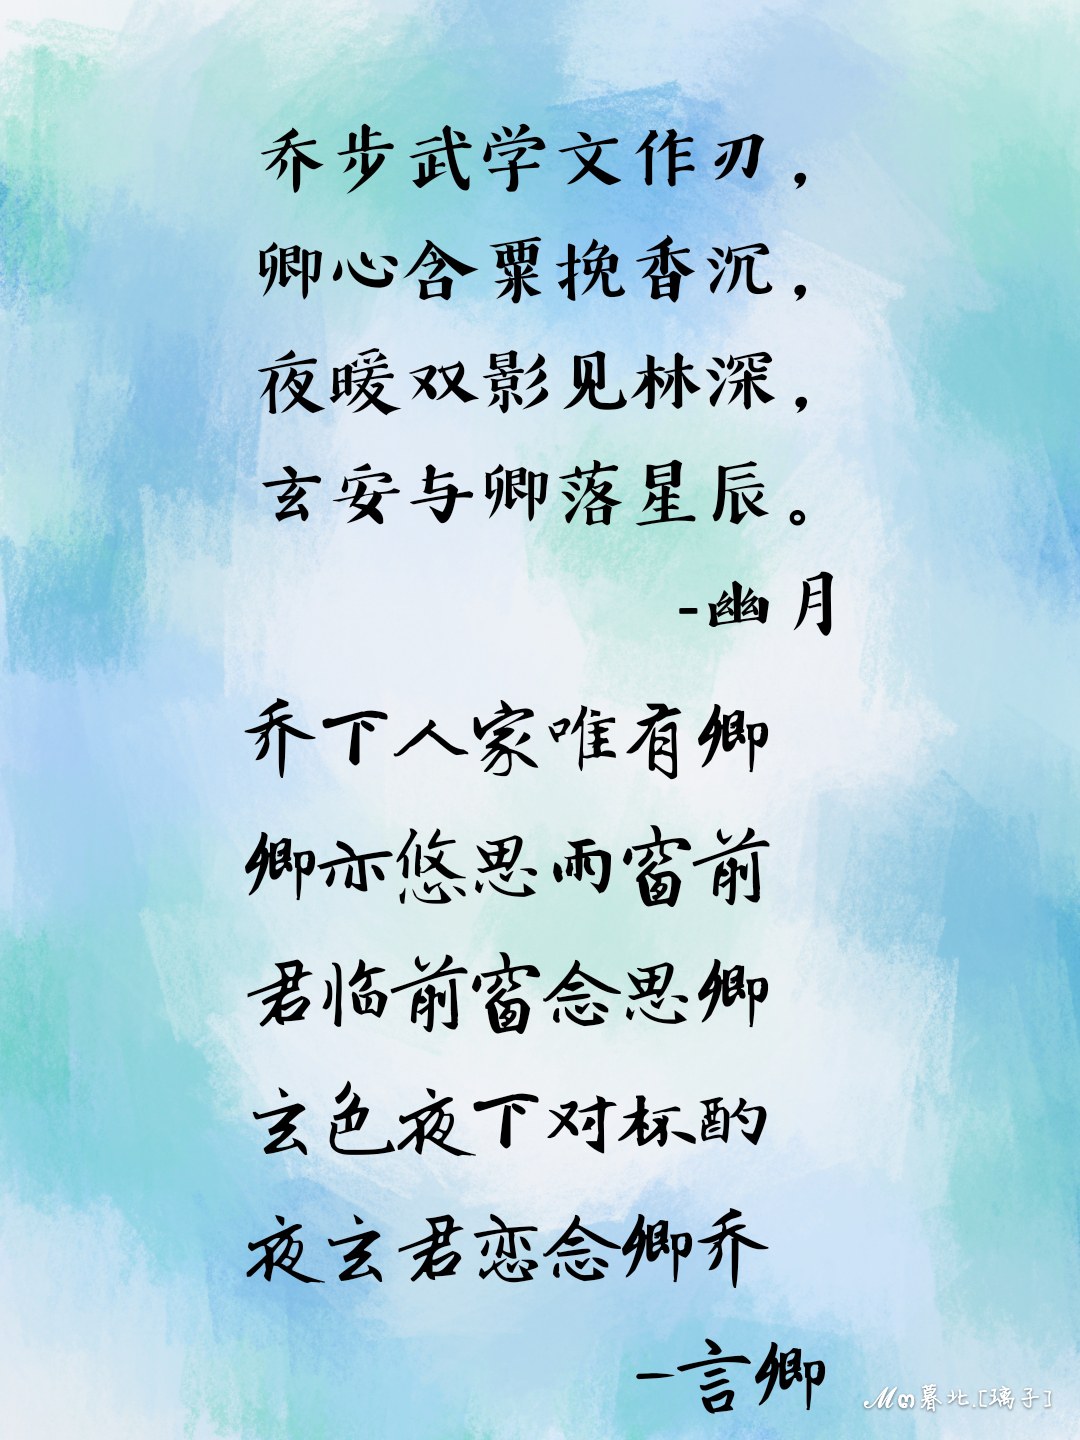 乔步武学文作刃，
卿心含粟挽香沉，
夜暖双影见林深，
玄安与卿落星辰。
-幽月
乔下人家唯有卿
卿亦悠思雨窗前
君临前窗念思卿
玄色夜下对杯酌
夜玄君恋念卿乔
-言卿
暮北.[璃子]